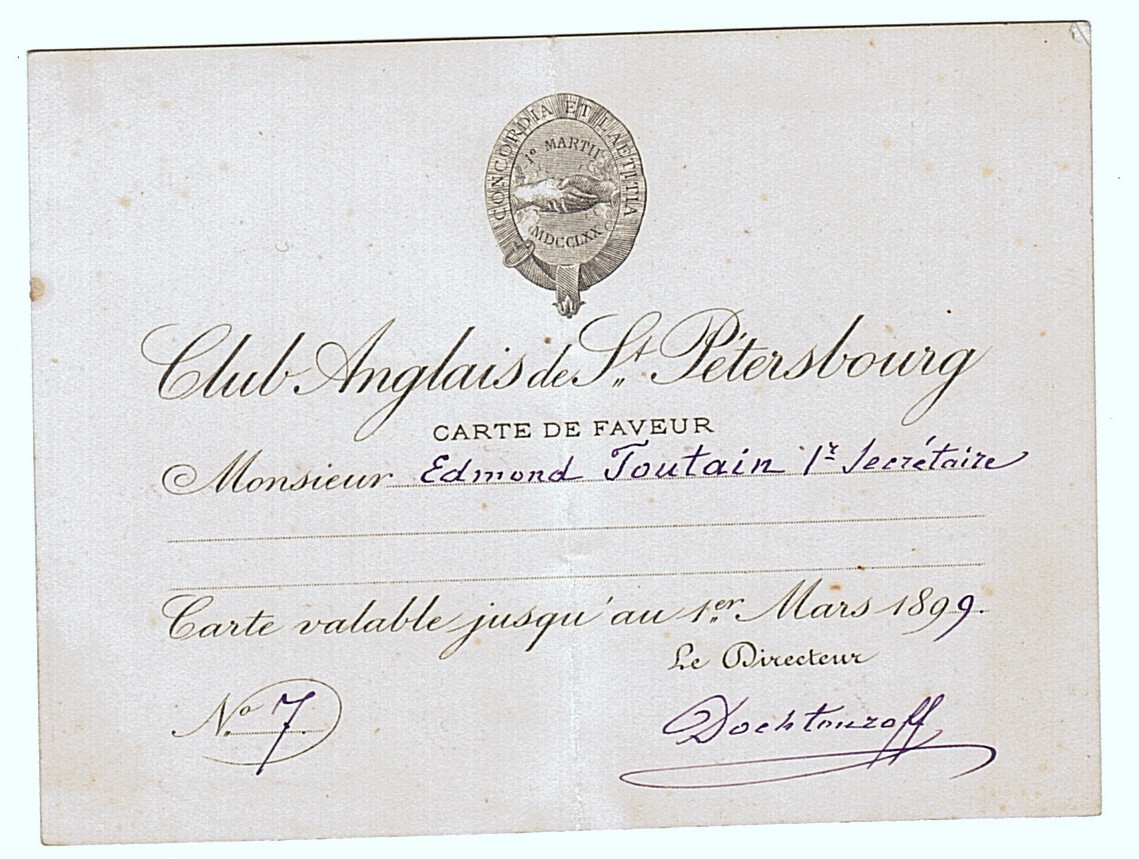 CONCORDIA ET LAETITIA
1º MARTII
MDCCLXX
Club Anglais de St. Pétersbourg
CARTE DE FAVEUR
Monsieur Edmond Toutain 1r Secrétaire
Carte valable jusqu'au 1er Mars 1899.
Le Directeur
No. 7
Dochtouroff